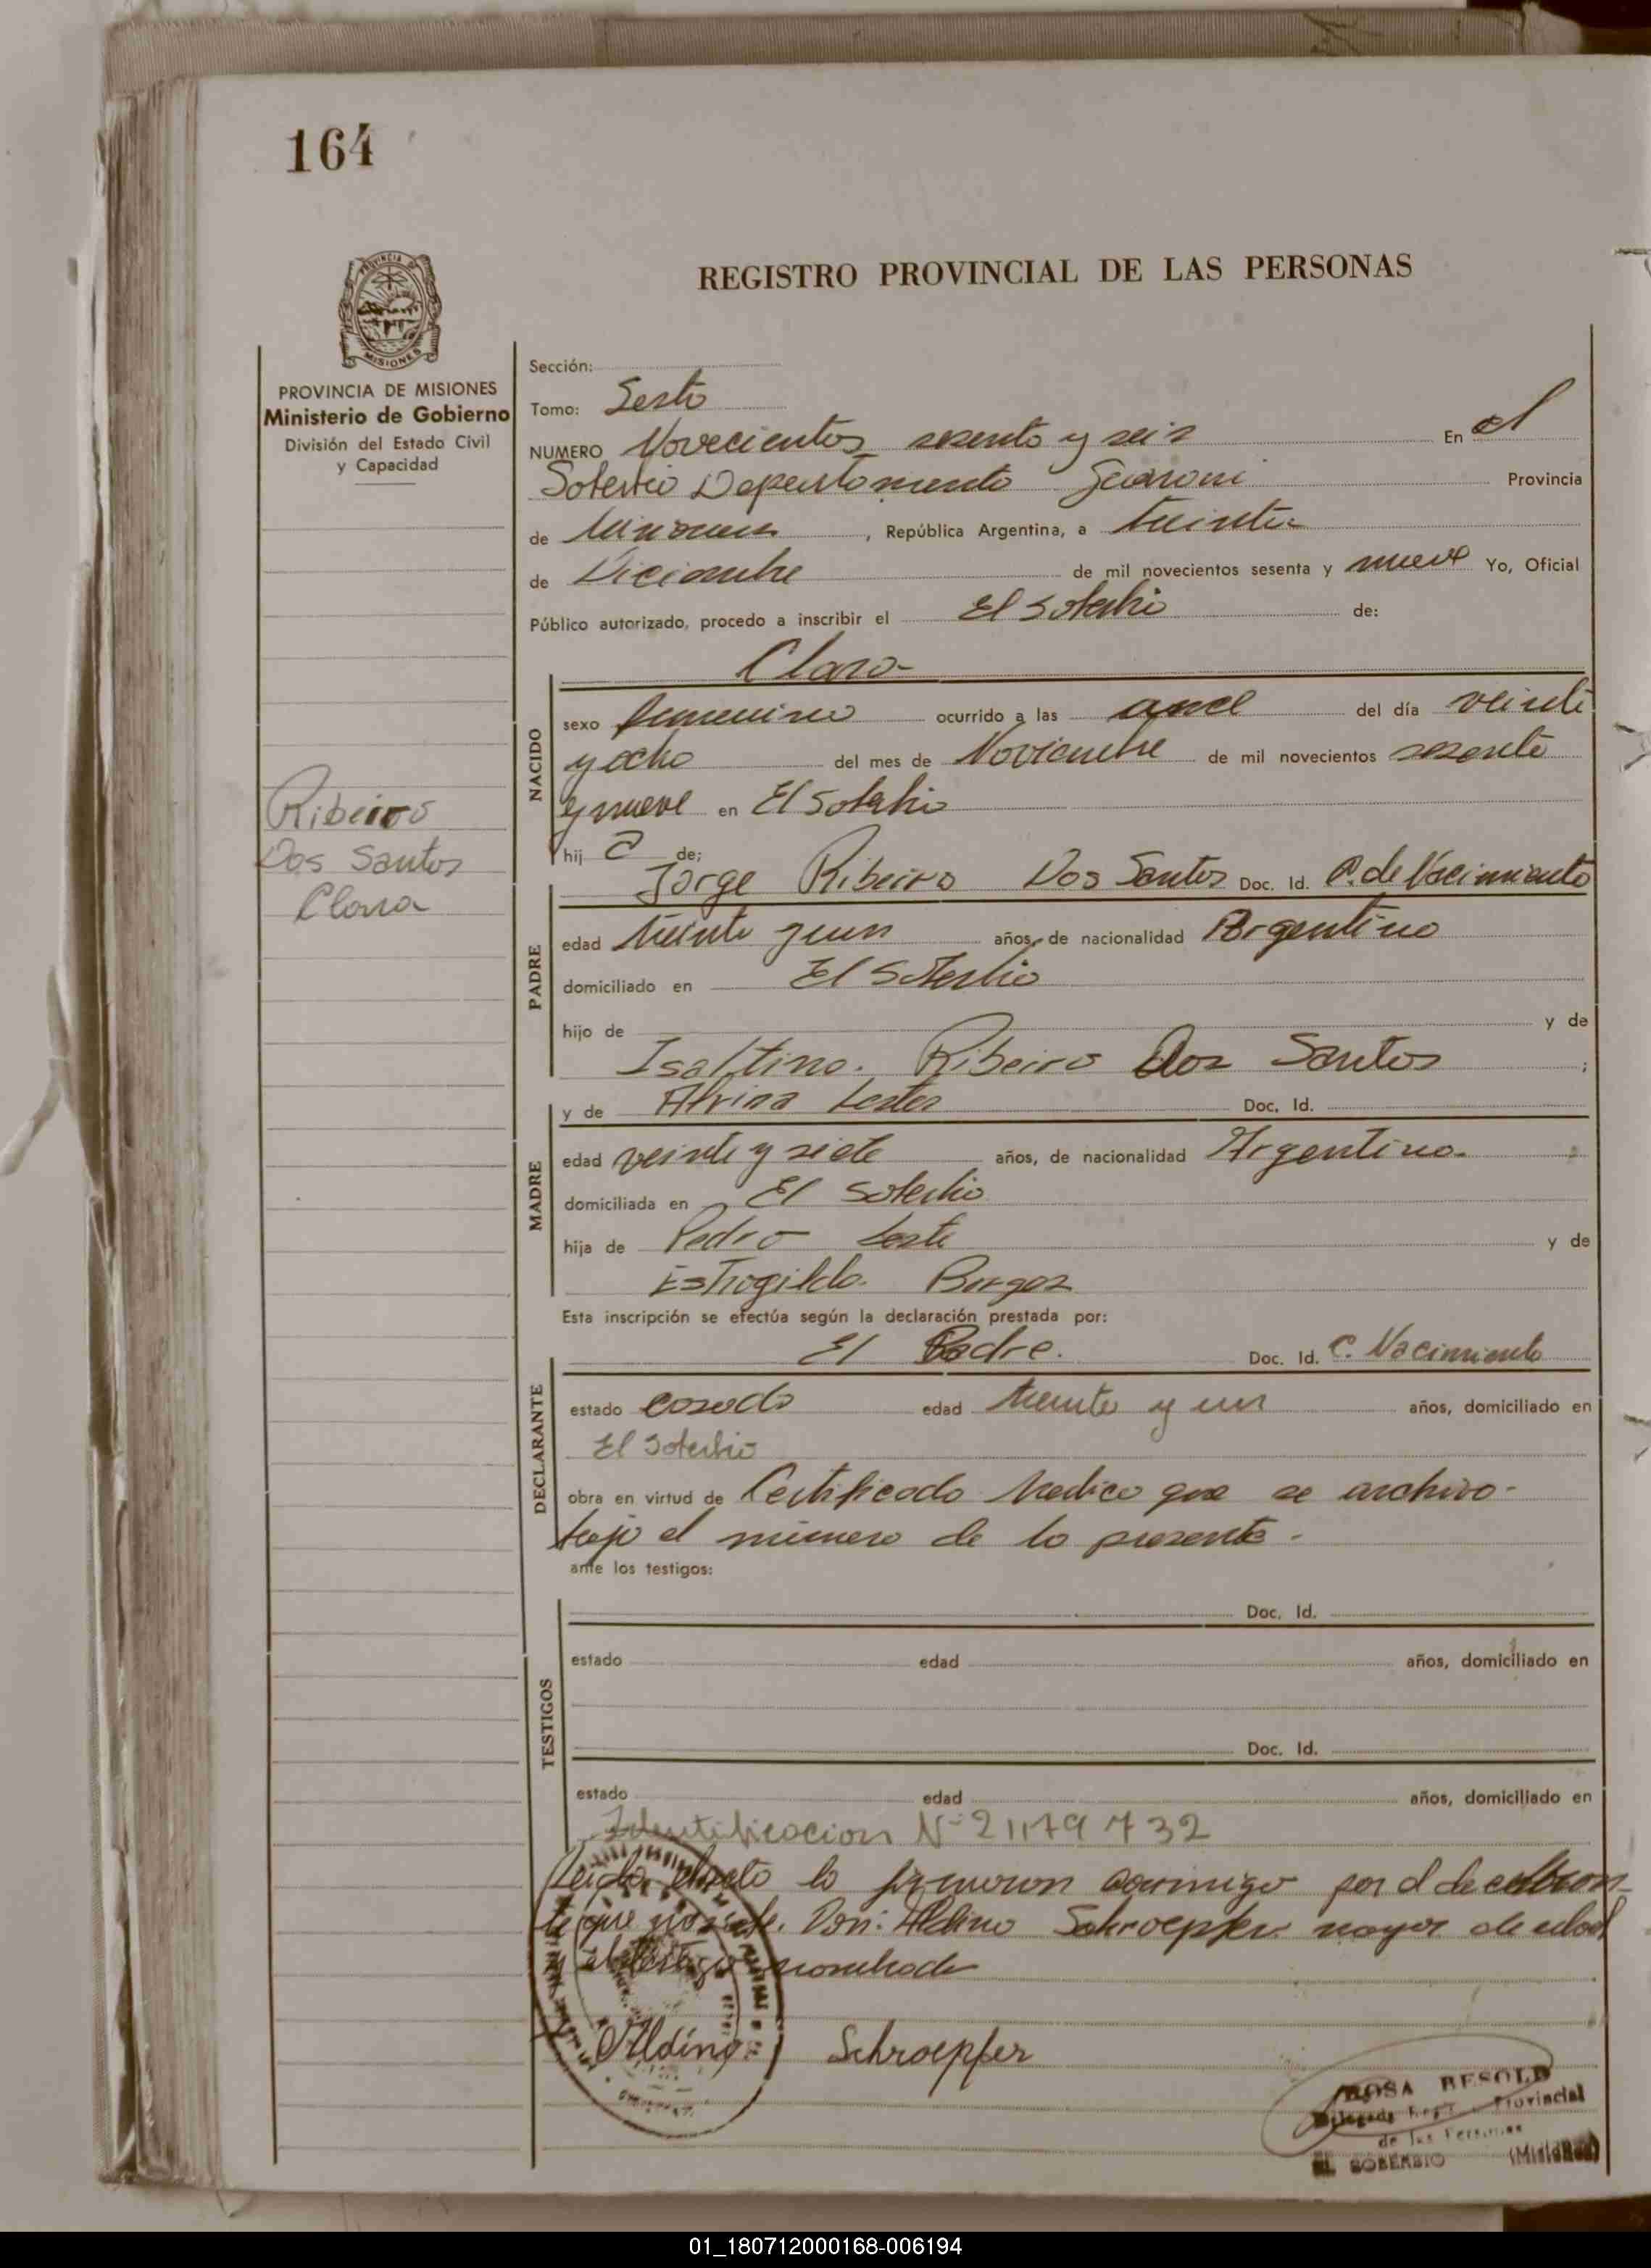 164
REGISTRO PROVINCIAL DE LAS PERSONAS
MISIONES
PROVINCIA DE MISIONES
Ministerio de Gobierno
División del Estado Civil
y Capacidad
Ribeiro
Dos Santos
Clara
Sección:
Tomo: Sesto
NUMERO Novecientos sesenta y seis En el
Soberbio Departamento Guarani Provincia
de Misiones, República Argentina, a treinta
de Diciembre de mil novecientos sesenta y nueve Yo, Oficial
Público autorizado, procedo a inscribir el El Soberbio de:
Clara-
NACIDO
sexo femenino ocurrido a las once del día veinti
y ocho del mes de Noviembre de mil novecientos sesenta
y nueve en El Soberbio
hij a de;
Jorge Ribeiro Dos Santos Doc. Id. C. de Nacimiento
PADRE
edad treinta y un años, de nacionalidad Argentino
domiciliado en El Soberbio
hijo de y de
Isaltino. Ribeiro dos Santos ;
y de Alvina Doc. Id.
MADRE
edad veinte y siete años, de nacionalidad Argentina.
domiciliada en El Soberbio
hija de Pedro y de
Borges
Esta inscripción se efectúa según la declaración prestada por:
El Padre. Doc. Id. C. Nacimiento
DECLARANTE
estado casado edad treinta y un años, domiciliado en
El Soberbio
obra en virtud de Certificado Medico que se archivo-
bajo el numero de la presente-
ante los testigos:
Doc. Id.
TESTIGOS
estado edad años, domiciliado en
Doc. Id.
estado edad años, domiciliado en
Identificacion Nº 21179732
Leida el acta la firmaron conmigo por el declaran-
te que no sabe. Don: Aldino Schroepfer mayor de edad
y el testigo nombrado
Aldino Schroepfer
ROSA BESOLD
Delegada Provincial
de las Personas
EL SOBERBIO (Misiones)
01_180712000168-006194